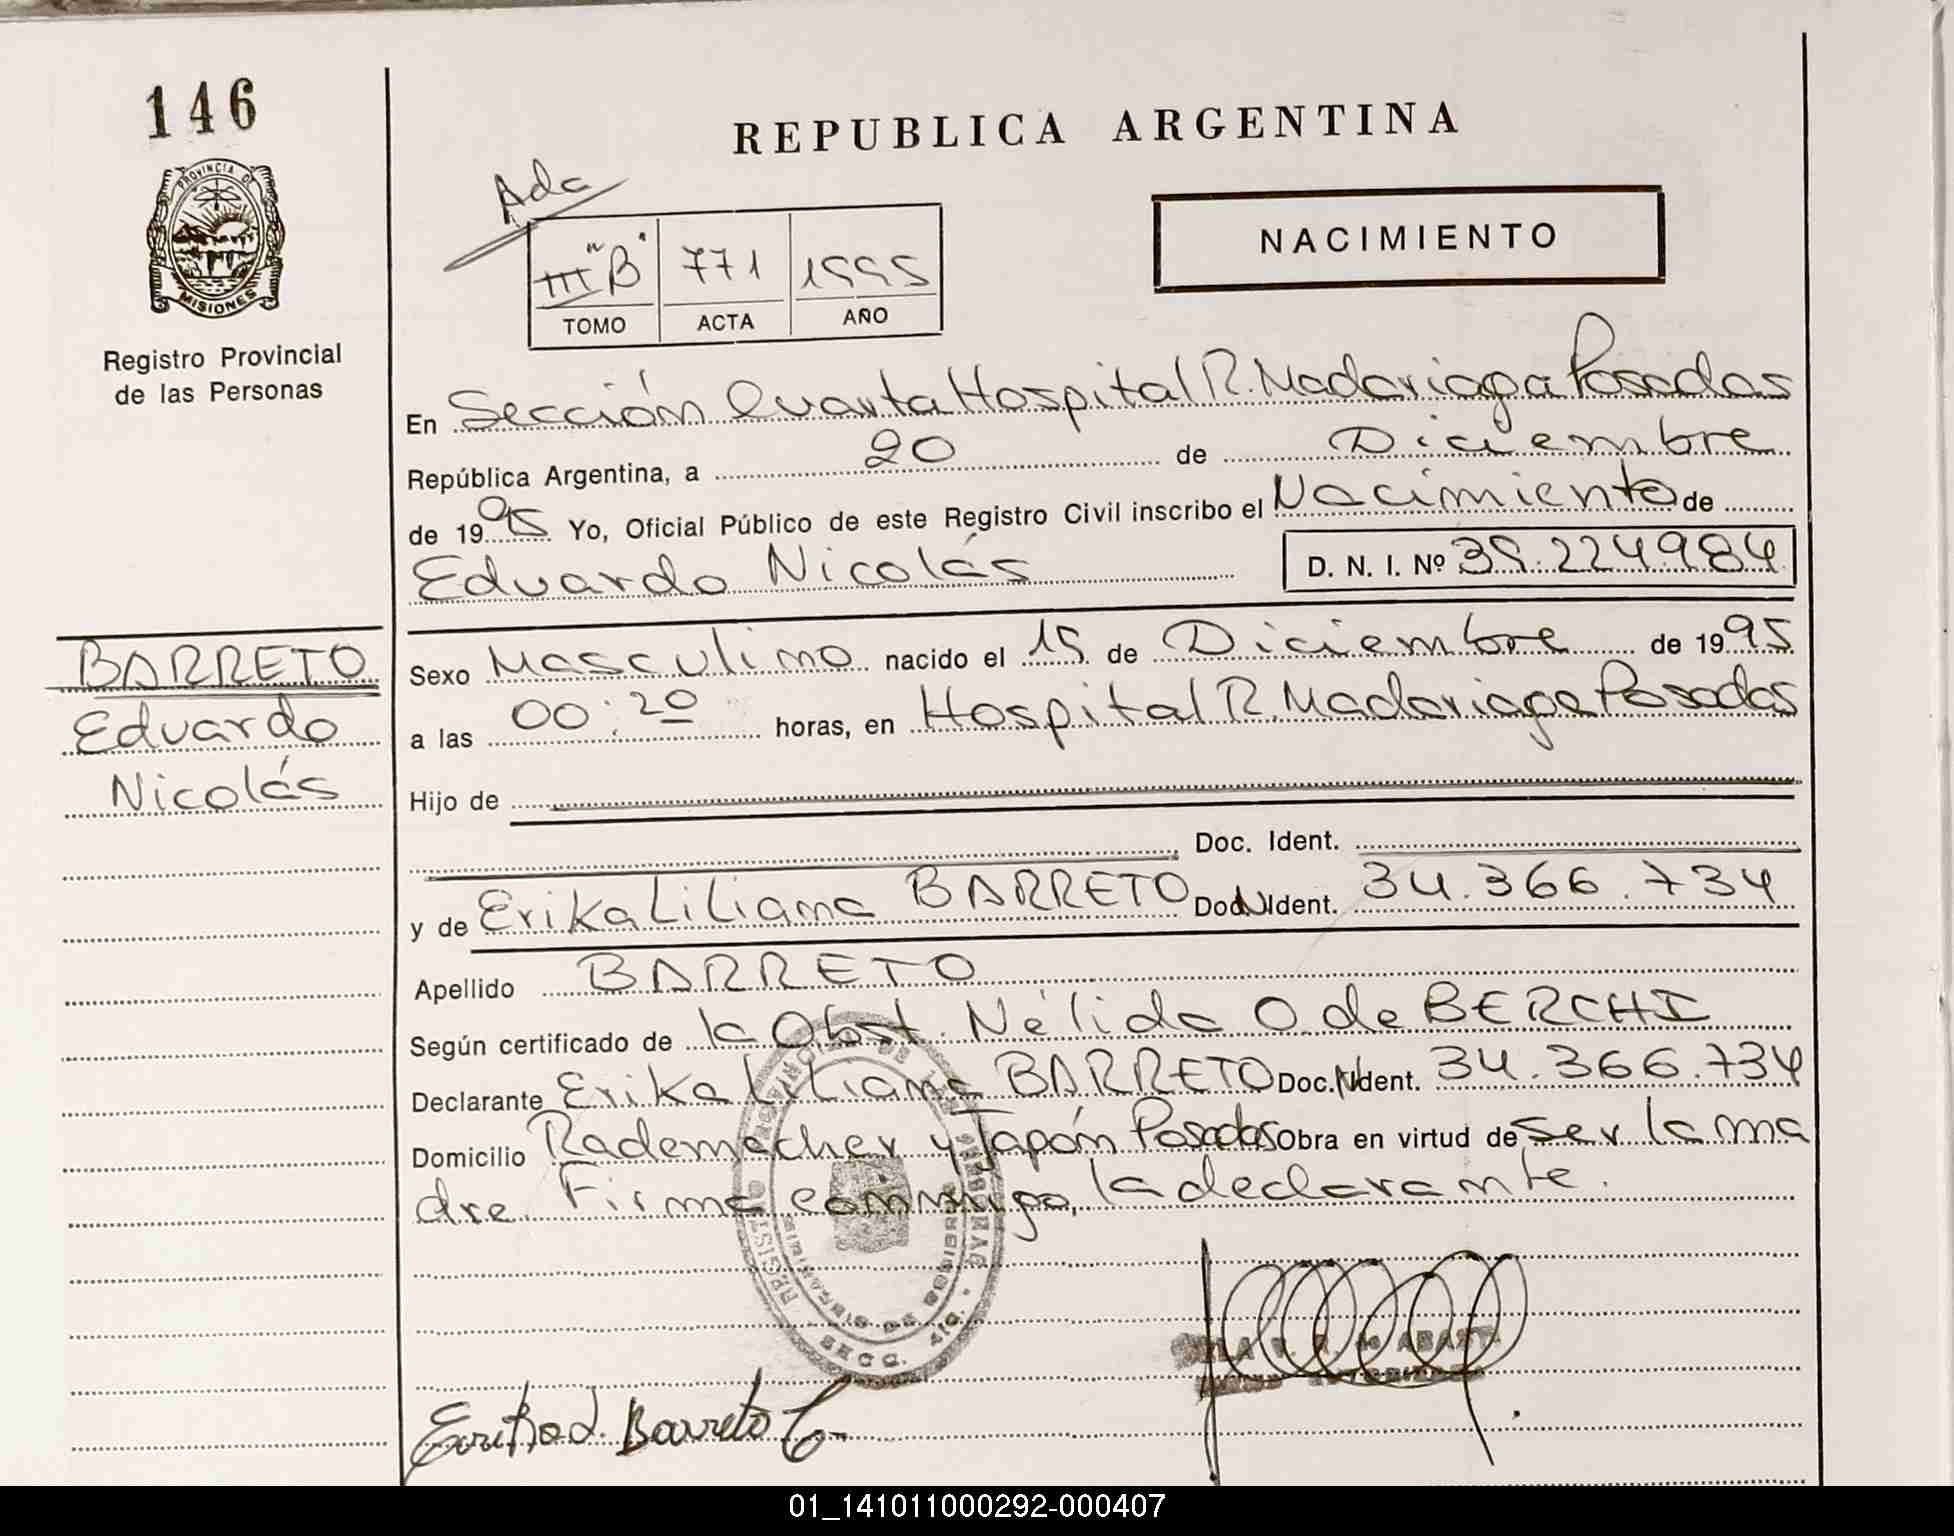 146
PROVINCIA DE
MISIONES
Registro Provincial
de las Personas
REPUBLICA ARGENTINA
NACIMIENTO
Ada
III "B" 771 1995
TOMO ACTA AÑO
En Sección Cuarta Hospital R. Madariaga Posadas
República Argentina, a 20 de Diciembre
de 1995 Yo, Oficial Público de este Registro Civil inscribo el Nacimiento de
Eduardo Nicolás D. N. I. Nº 39.224984
BARRETO
Eduardo
Nicolás
Sexo Masculino nacido el 15 de Diciembre de 1995
a las 00:20 horas, en Hospital R. Madariaga Posadas
Hijo de
Doc. Ident.
y de Erika Liliana BARRETO Doc. Ident. 34.366.734
Apellido BARRETO
Según certificado de la Obst. Nélida O. de BERCHI
Declarante Erika Liliana BARRETO Doc. Ident. 34.366.734
Domicilio Rademacher y Japón Posadas Obra en virtud de ser la ma
dre. Firma conmigo, la declarante.
SECC.
Erika L. Barreto
01_141011000292-000407